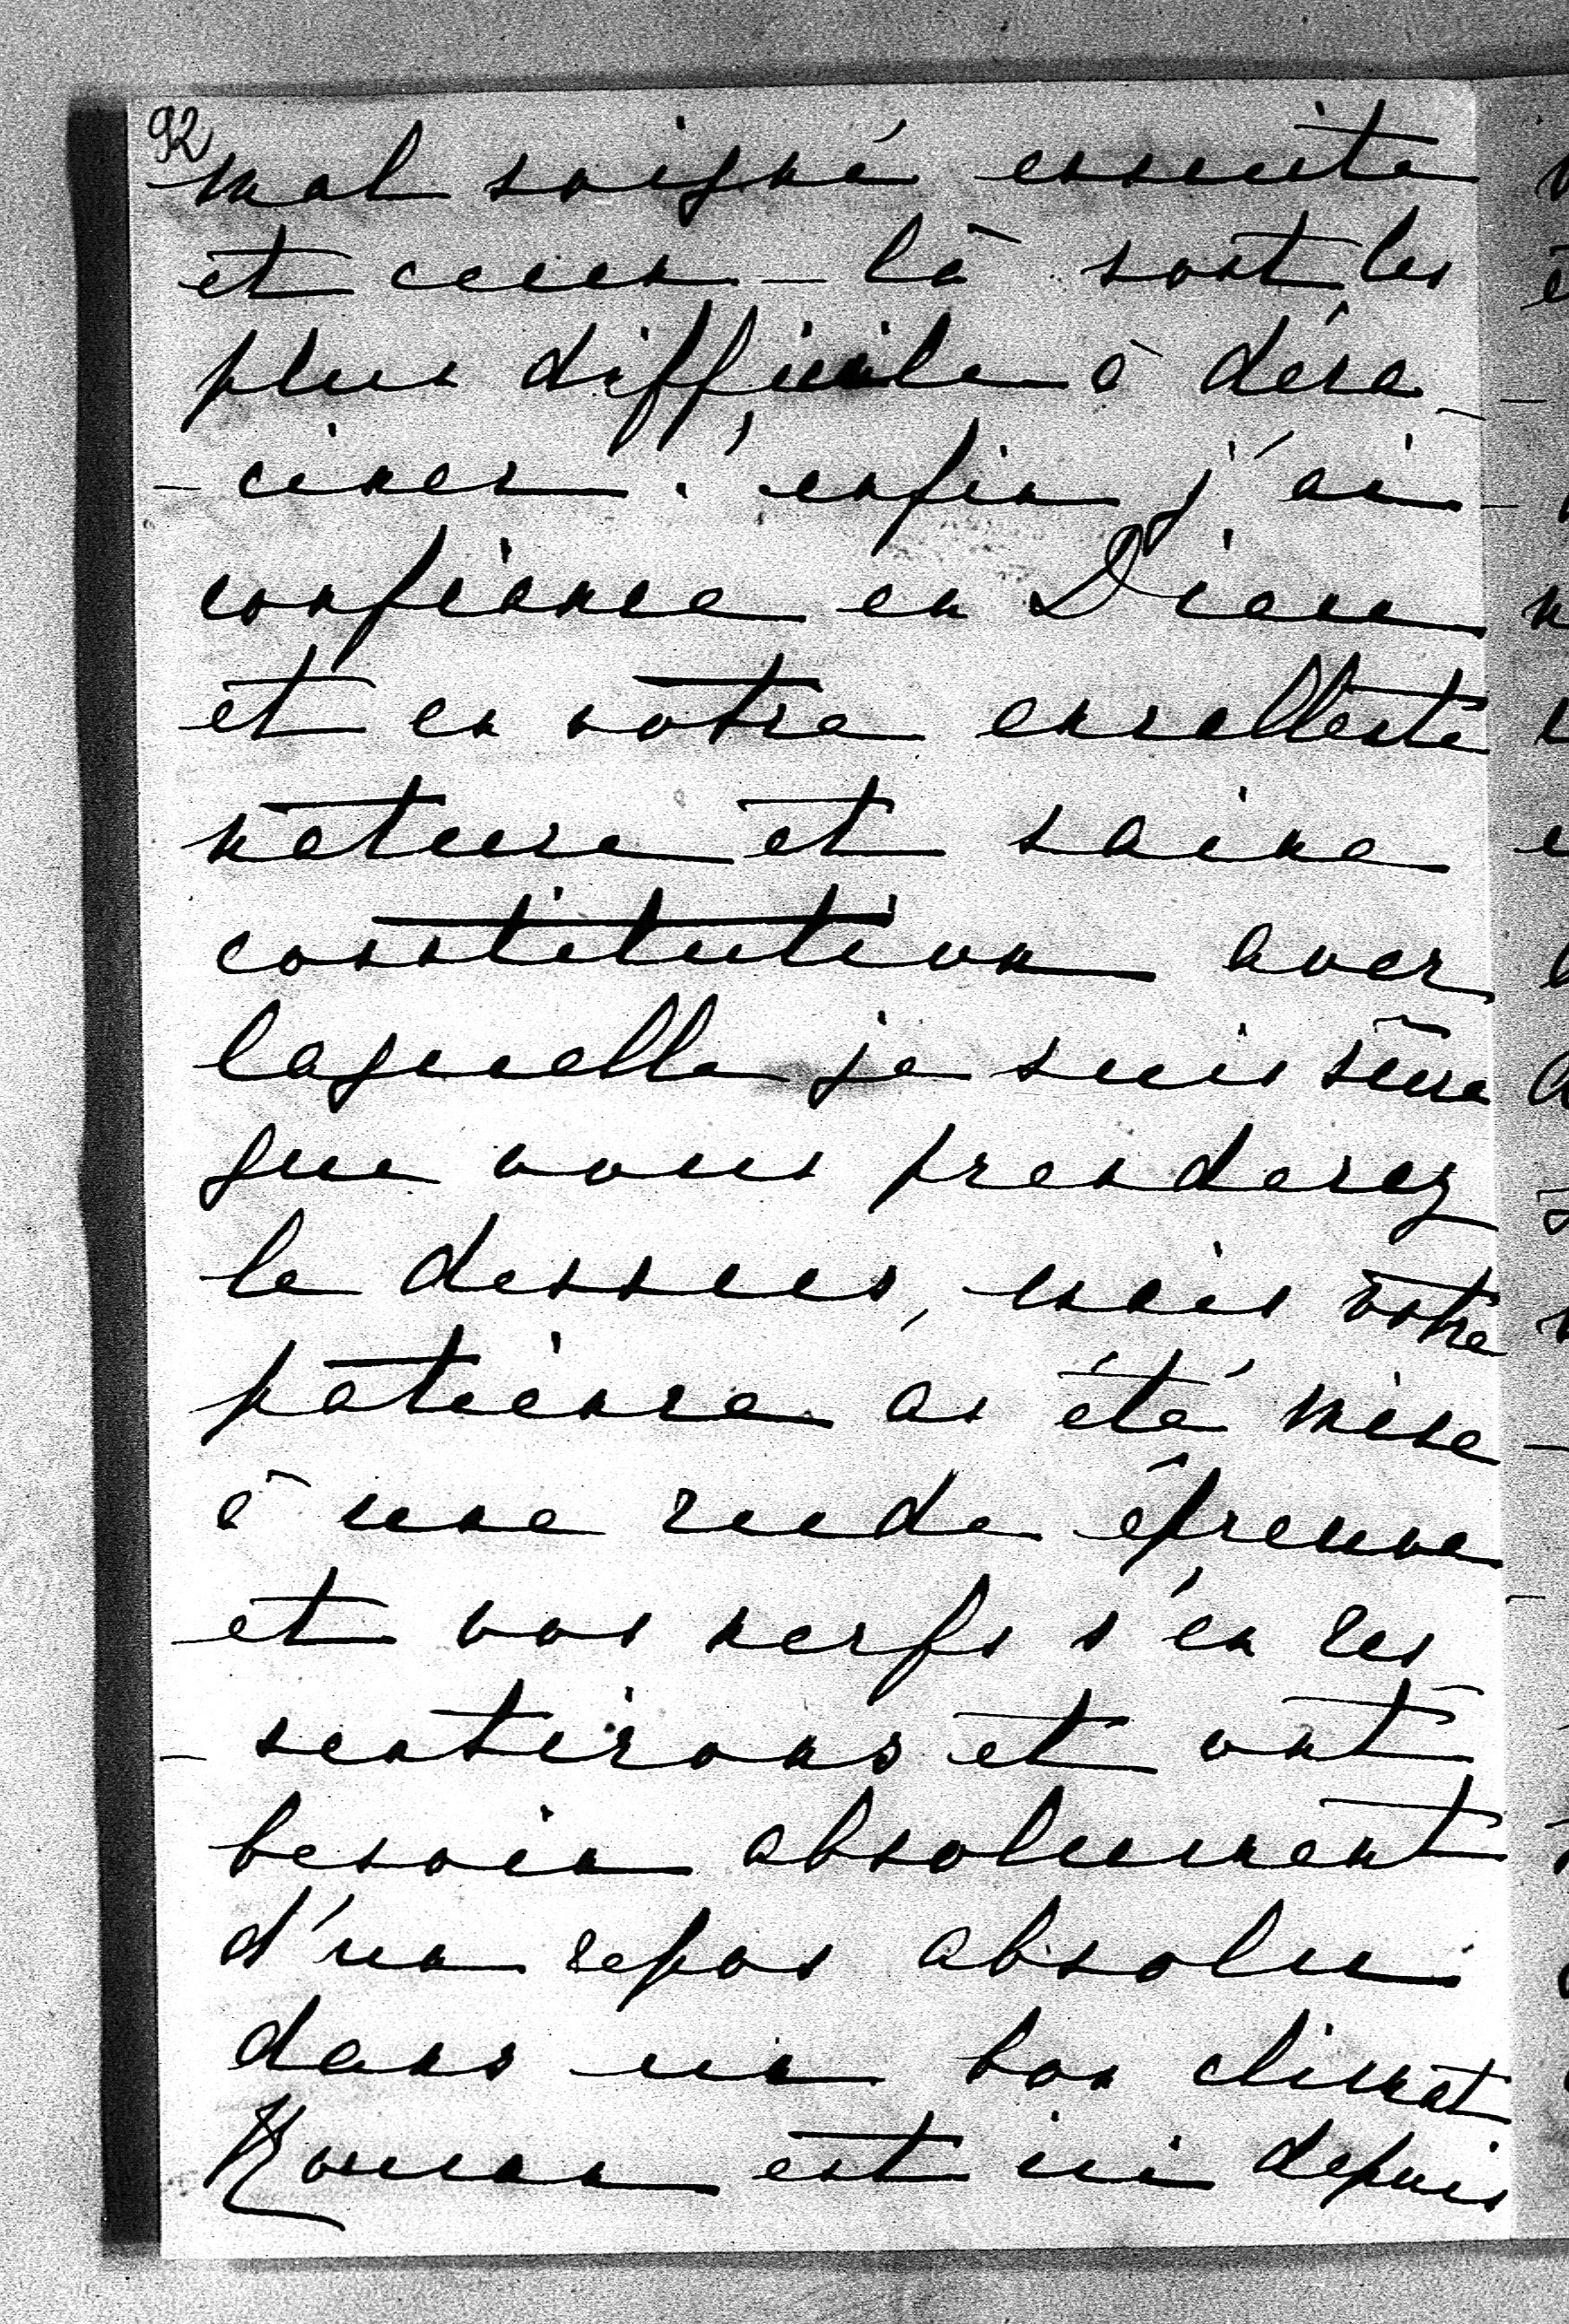 92
mal soigné ensuite
et ceux-là sont les
plus difficile à déra-
-ciner. enfin j'ai
confiance en Dieu
et en votre excellente
nature et saine
constitution avec
laquelle je suis sûre
que vous prenderez
le dessus, mais votre
patience as été mise
à une rude épreuve
et vos nerfs s'en res
-sentirons et ont
besoin absolument
d'un repos absolu
dans un bon climat
est ici depuis